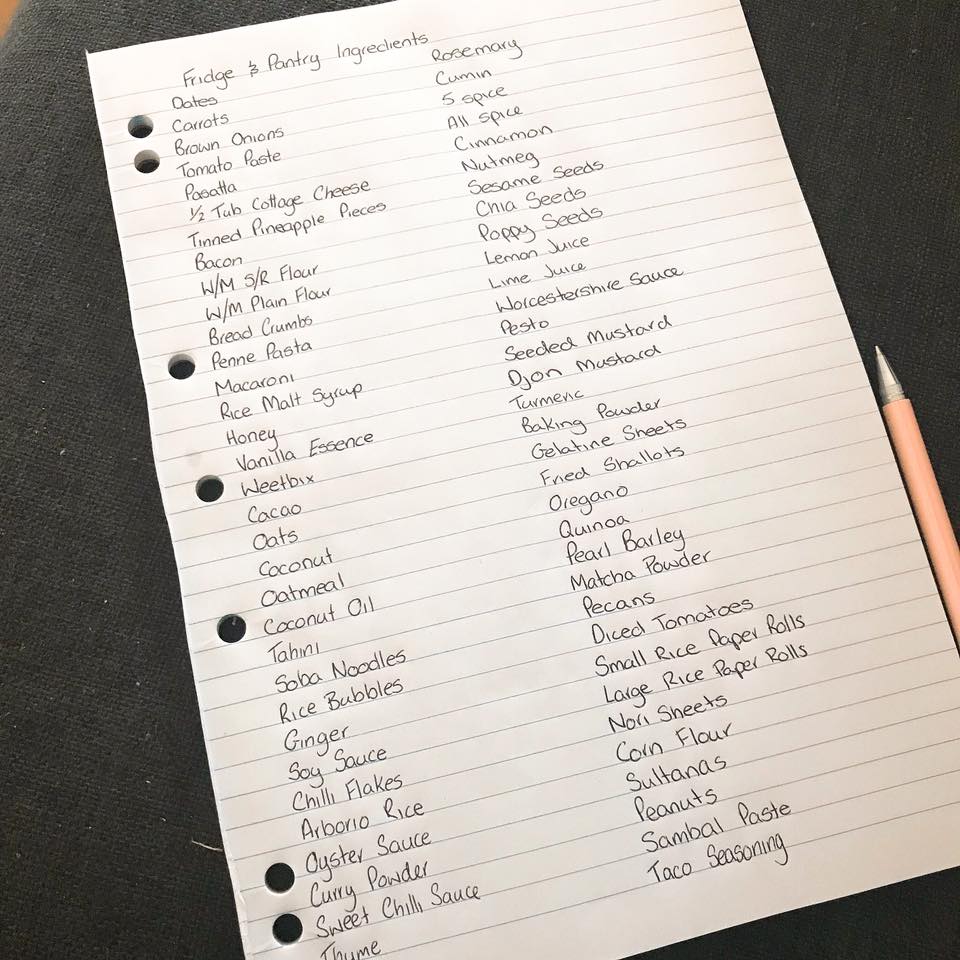 Fridge & Pantry Ingredients
Dates
Carrots
Brown Onions
Tomato Paste
Pasatta
1/2 Tub Cottage Cheese
Tinned Pineapple Pieces
Bacon
W/M S/R Flour
W/M Plain Flour
Bread Crumbs
Penne Pasta
Macaroni
Rice Malt Syrup
Honey
Vanilla Essence
Weetbix
Cacao
Oats
Coconut
Oatmeal
Coconut Oil
Tahini
Soba Noodles
Rice Bubbles
Ginger
Soy Sauce
Chilli Flakes
Arborio Rice
Oyster Sauce
Curry Powder
Sweet Chilli Sauce
Thyme
Rosemary
Cumin
5 spice
All spice
Cinnamon
Nutmeg
Sesame Seeds
Chia Seeds
Poppy Seeds
Lemon Juice
Lime Juice
Worcestershire Sauce
Pesto
Seeded Mustard
Djon Mustard
Turmeric
Baking Powder
Gelatine Sheets
Fried Shallots
Oregano
Quinoa
Pearl Barley
Matcha Powder
Pecans
Diced Tomatoes
Small Rice Paper Rolls
Large Rice Paper Rolls
Nori Sheets
Corn Flour
Sultanas
Peanuts
Sambal Paste
Taco Seasoning